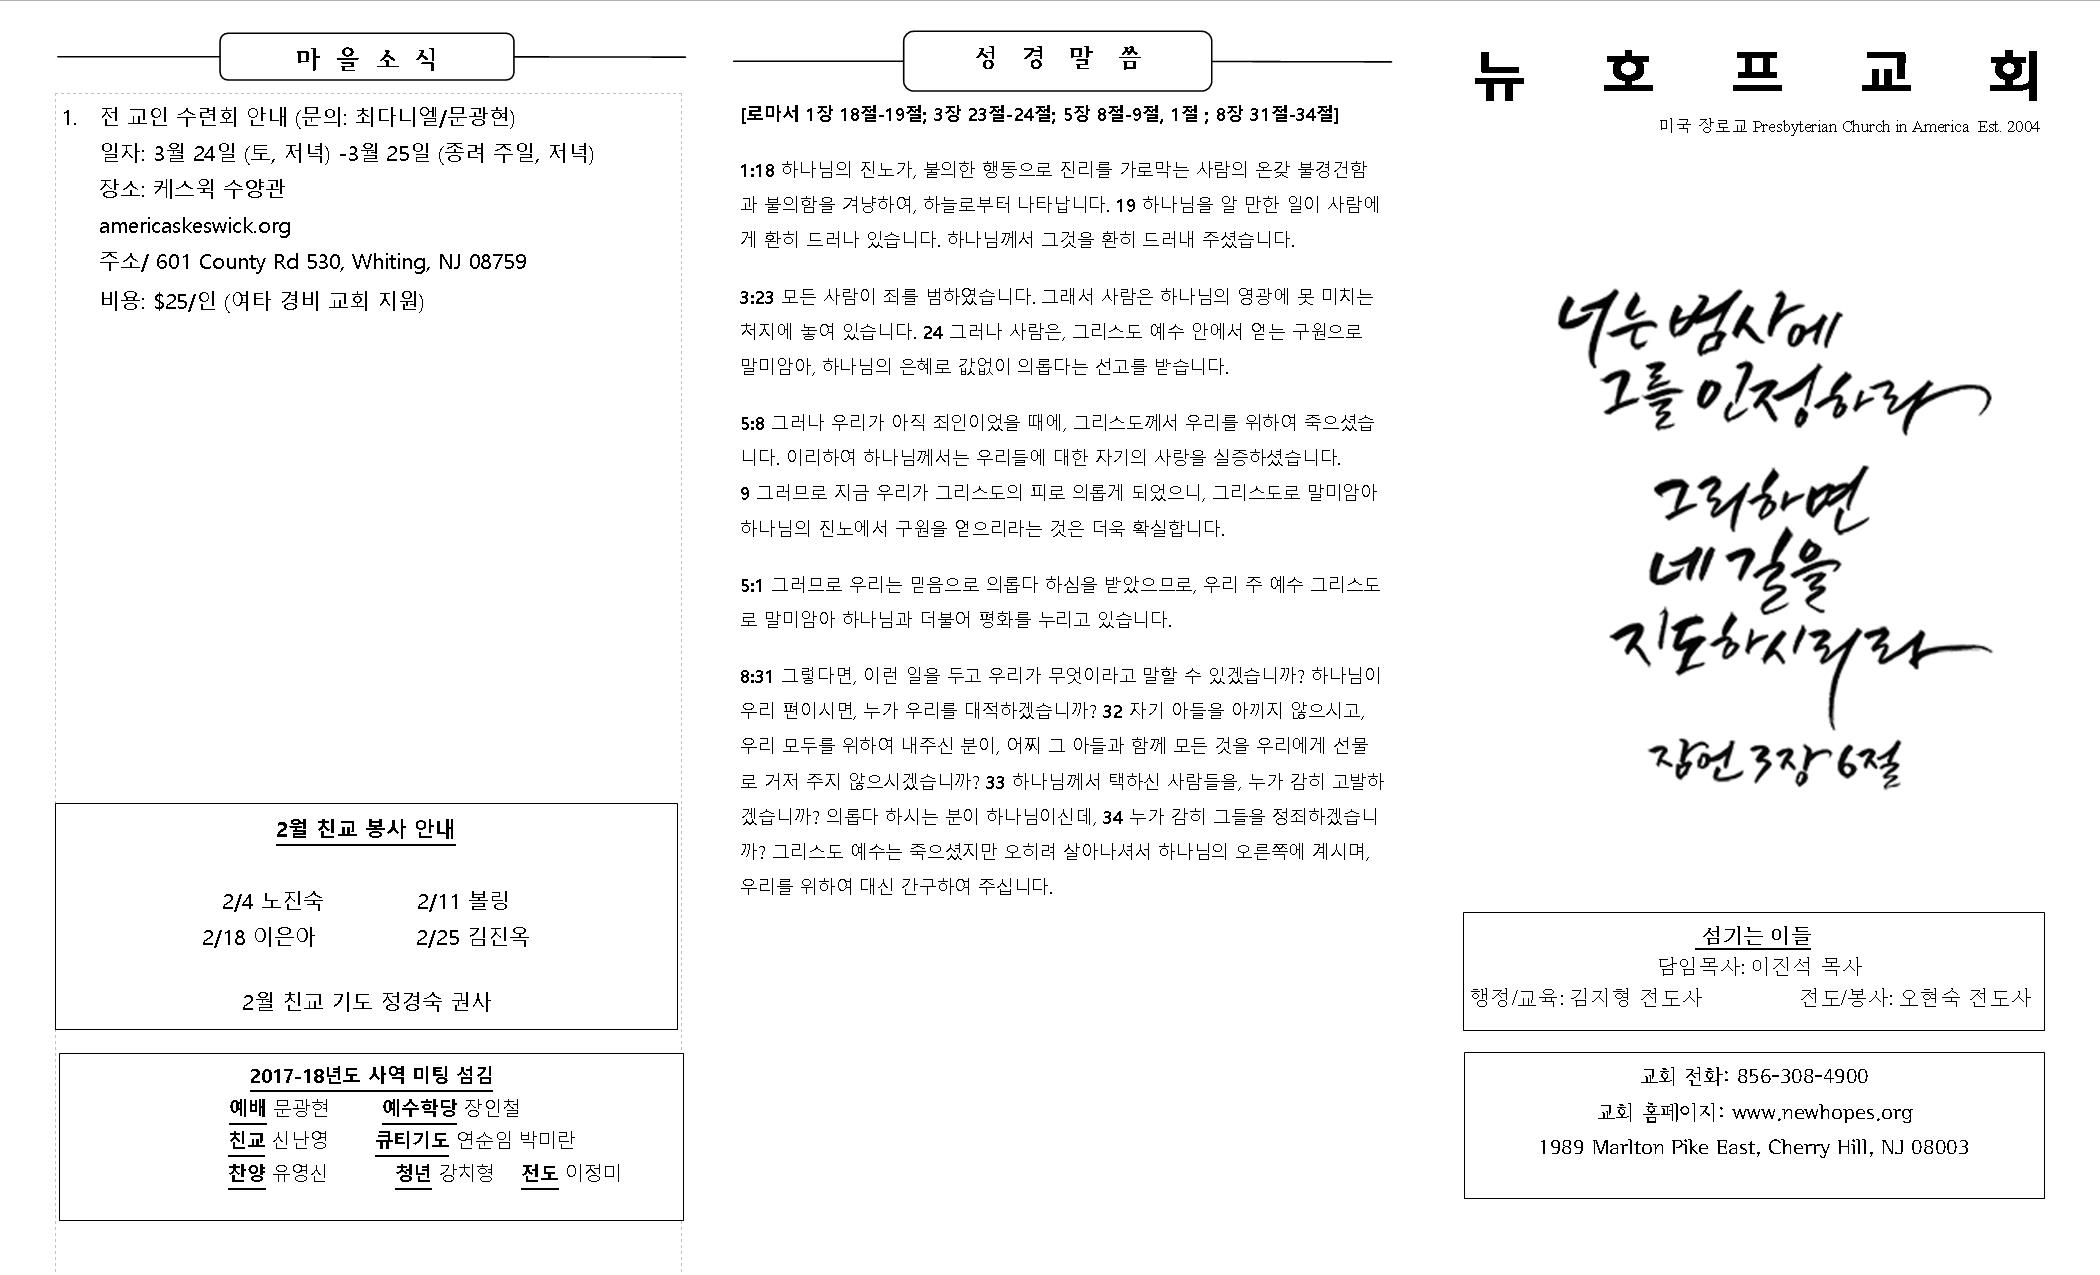 마 을 소 식
1. 전 교인 수련회 안내 (문의: 최다니엘/문광현)
일자: 3월 24일 (토, 저녁) -3월 25일 (종려 주일, 저녁)
장소: 케스윅 수양관
americaskeswick.org
주소/ 601 County Rd 530, Whiting, NJ 08759
비용: $25/인 (여타 경비 교회 지원)
2월 친교 봉사 안내
2/4 노진숙 2/11 볼링
2/18 이은아 2/25 김진옥
2월 친교 기도 정경숙 권사
2017-18년도 사역 미팅 섬김
예배 문광현 예수학당 장인철
친교 신난영 큐티기도 연순임 박미란
찬양 유영신 청년 강치형 전도 이정미
성 경 말 씀
[로마서 1장 18절-19절; 3장 23절-24절; 5장 8절-9절, 1절 ; 8장 31절-34절]
1:18 하나님의 진노가, 불의한 행동으로 진리를 가로막는 사람의 온갖 불경건함
과 불의함을 겨냥하여, 하늘로부터 나타납니다. 19 하나님을 알 만한 일이 사람에
게 환히 드러나 있습니다. 하나님께서 그것을 환히 드러내 주셨습니다.
3:23 모든 사람이 죄를 범하였습니다. 그래서 사람은 하나님의 영광에 못 미치는
처지에 놓여 있습니다. 24 그러나 사람은, 그리스도 예수 안에서 얻는 구원으로
말미암아, 하나님의 은혜로 값없이 의롭다는 선고를 받습니다.
5:8 그러나 우리가 아직 죄인이었을 때에, 그리스도께서 우리를 위하여 죽으셨습
니다. 이리하여 하나님께서는 우리들에 대한 자기의 사랑을 실증하셨습니다.
9 그러므로 지금 우리가 그리스도의 피로 의롭게 되었으니, 그리스도로 말미암아
하나님의 진노에서 구원을 얻으리라는 것은 더욱 확실합니다.
5:1 그러므로 우리는 믿음으로 의롭다 하심을 받았으므로, 우리 주 예수 그리스도
로 말미암아 하나님과 더불어 평화를 누리고 있습니다.
8:31 그렇다면, 이런 일을 두고 우리가 무엇이라고 말할 수 있겠습니까? 하나님이
우리 편이시면, 누가 우리를 대적하겠습니까? 32 자기 아들을 아끼지 않으시고,
우리 모두를 위하여 내주신 분이, 어찌 그 아들과 함께 모든 것을 우리에게 선물
로 거저 주지 않으시겠습니까? 33 하나님께서 택하신 사람들을, 누가 감히 고발하
겠습니까? 의롭다 하시는 분이 하나님이신데, 34 누가 감히 그들을 정죄하겠습니
까? 그리스도 예수는 죽으셨지만 오히려 살아나셔서 하나님의 오른쪽에 계시며,
우리를 위하여 대신 간구하여 주십니다.
뉴 호 프 교 회
미국 장로교 Presbyterian Church in America Est. 2004
너는 범사에
그를 인정하라
그리하면
네 길을
지도하시리라
잠언 3장 6절
섬기는 이들
담임목사: 이진석 목사
행정/교육: 김지형 전도사 전도/봉사: 오현숙 전도사
교회 전화: 856-308-4900
교회 홈페이지: www.newhopes.org
1989 Marlton Pike East, Cherry Hill, NJ 08003